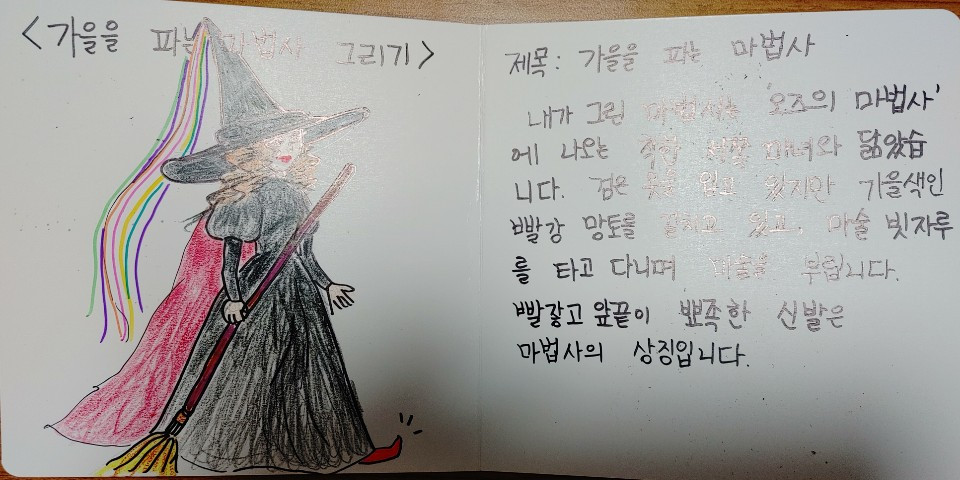 <가을을 파는 마법사 그리기>
제목: 가을을 파는 마법사
내가 그린 마법사는 '오즈의 마법사'
에 나오는 착한 마녀와 닮았습
니다. 검은 옷을 입고 있지만 가을색인
빨강 망토를 걸치고 있고, 마술 빗자루
를 타고 다니며 마술을 부립니다.
빨갛고 앞끝이 뾰족한 신발은
마법사의 상징입니다.